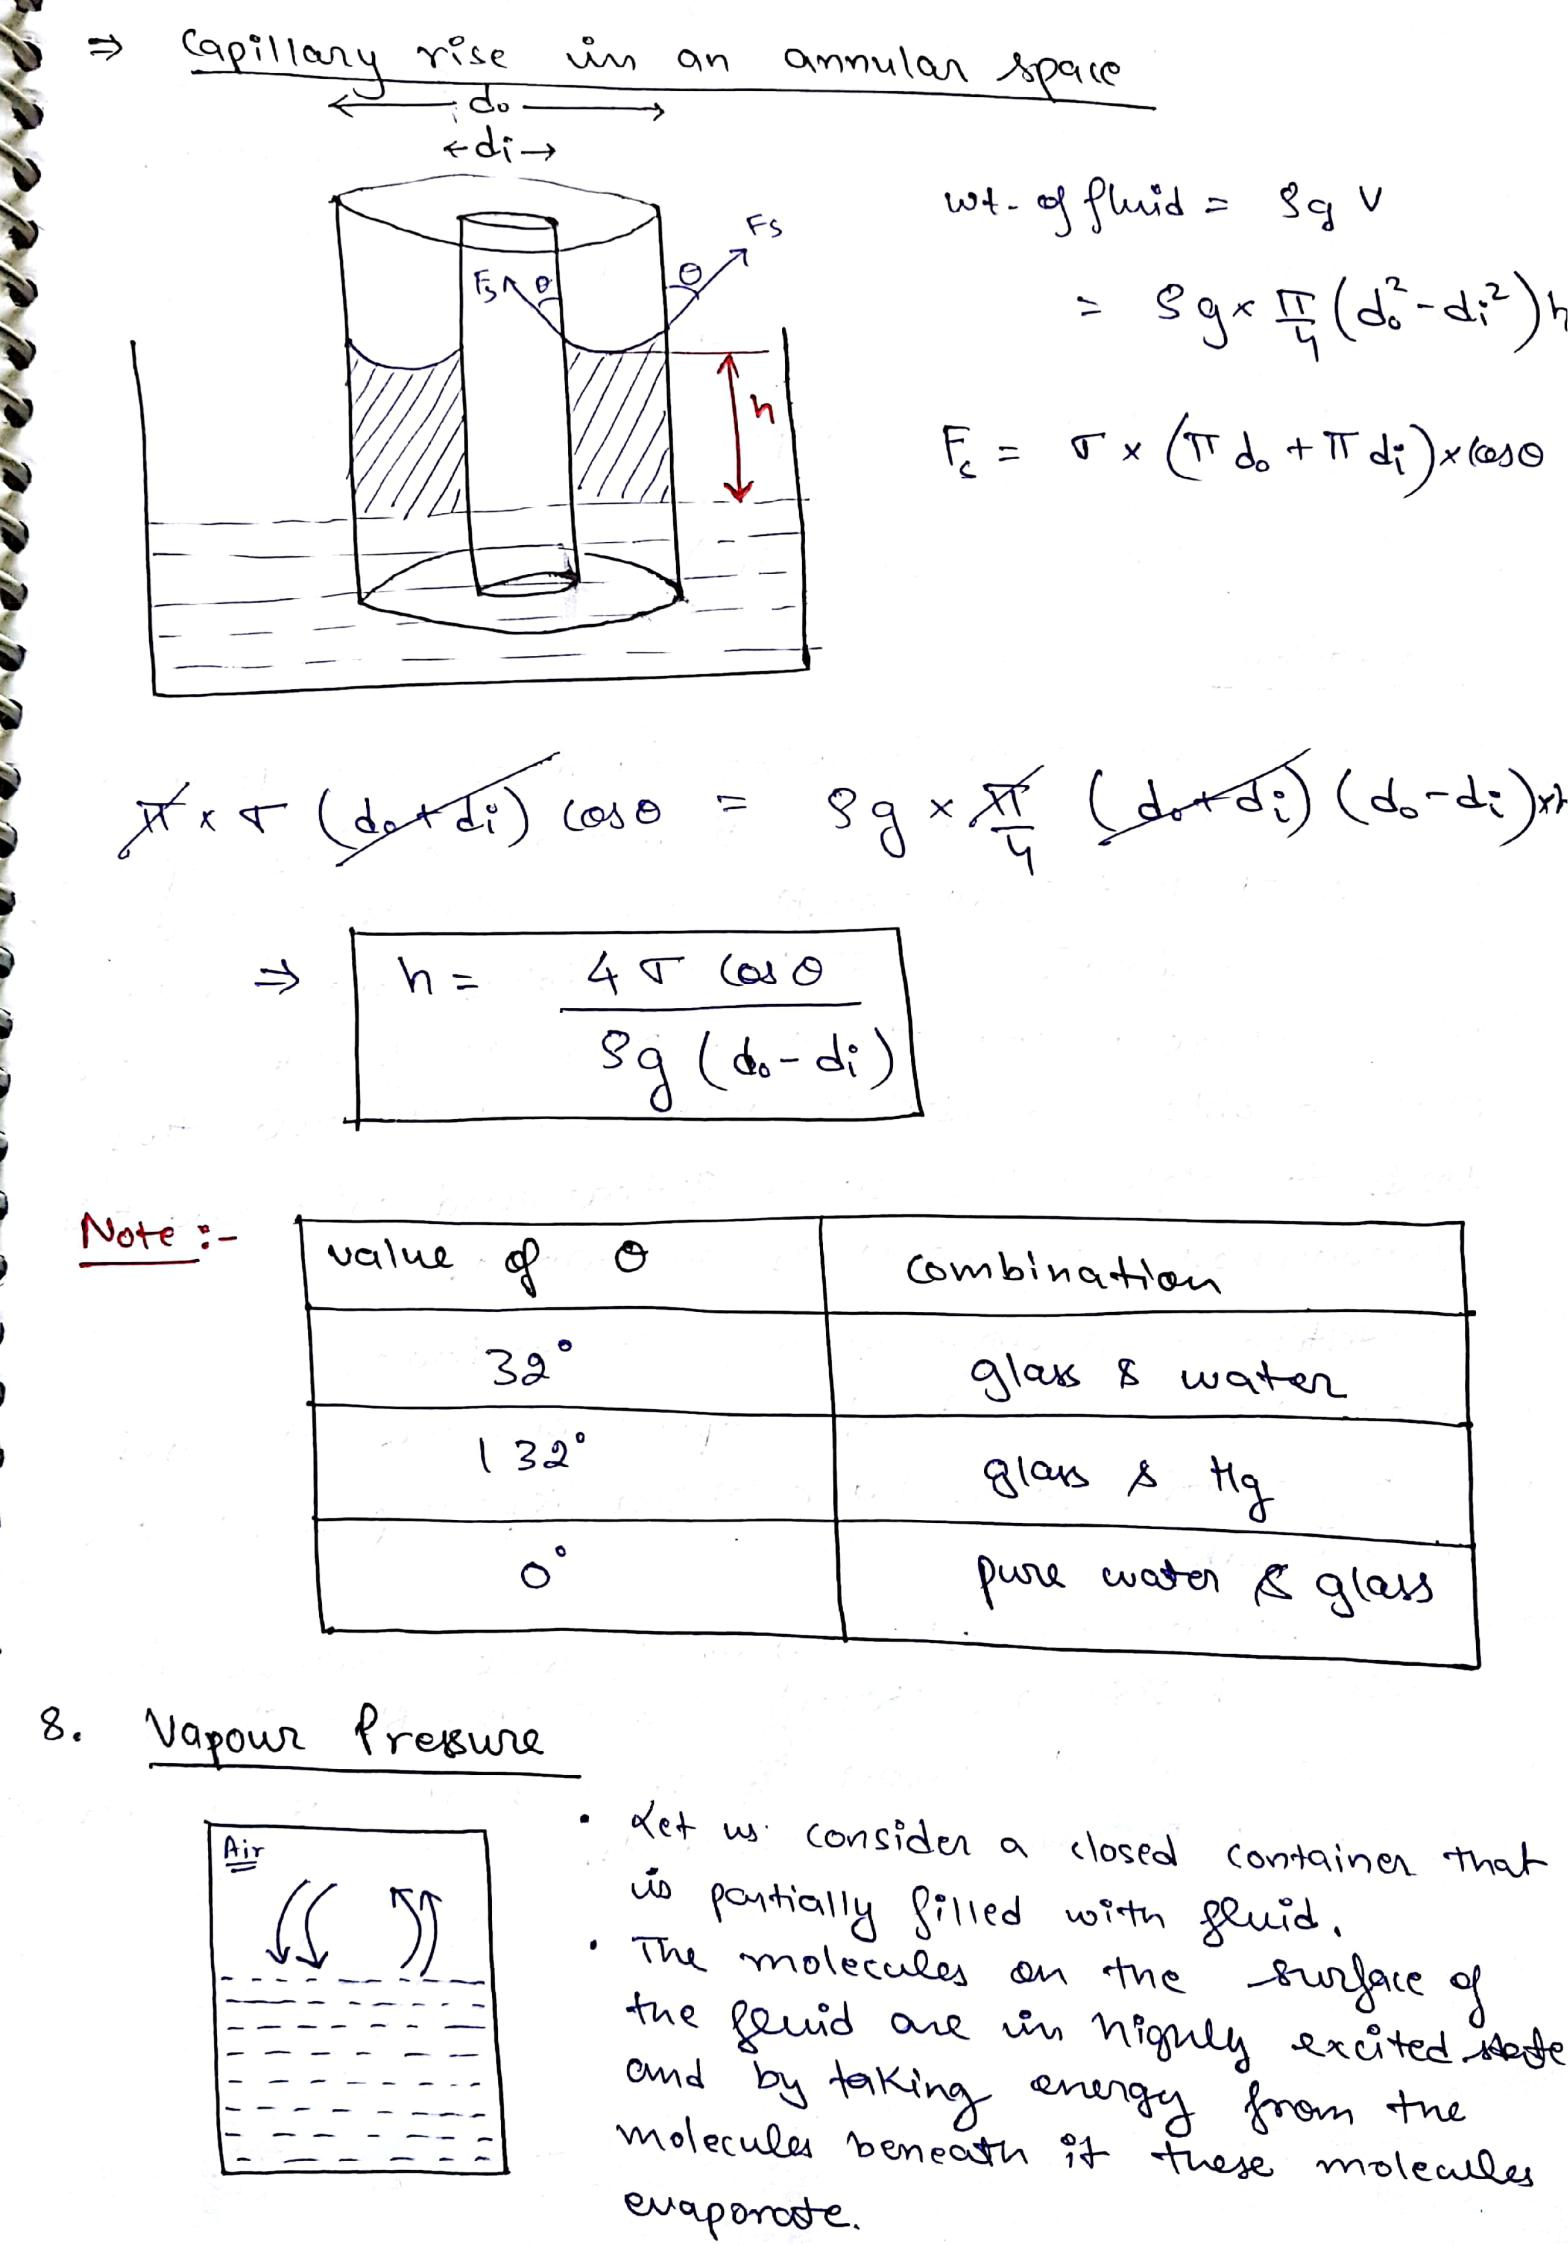 ⇒ Capillary rise in an annular space
← do →
←di→
Fs
θ
Fs θ
h
wt. of fluid = ρg V
= ρg × π/4 (do² - di²) h
Fs = σ × (π do + π di) × cosθ
π × σ (do+di) cosθ = ρg × π/4 (do+di) (do-di) × h
⇒ h = 4 σ cosθ / ρg (do - di)
Note :-
value of θ combination
32° glass & water
132° glass & Hg
0° pure water & glass
8. Vapour Pressure
Air
• Let us consider a closed container that
is partially filled with fluid.
• The molecules on the surface of
the fluid are in highly excited state
and by taking energy from the
molecules beneath it these molecules
evaporate.